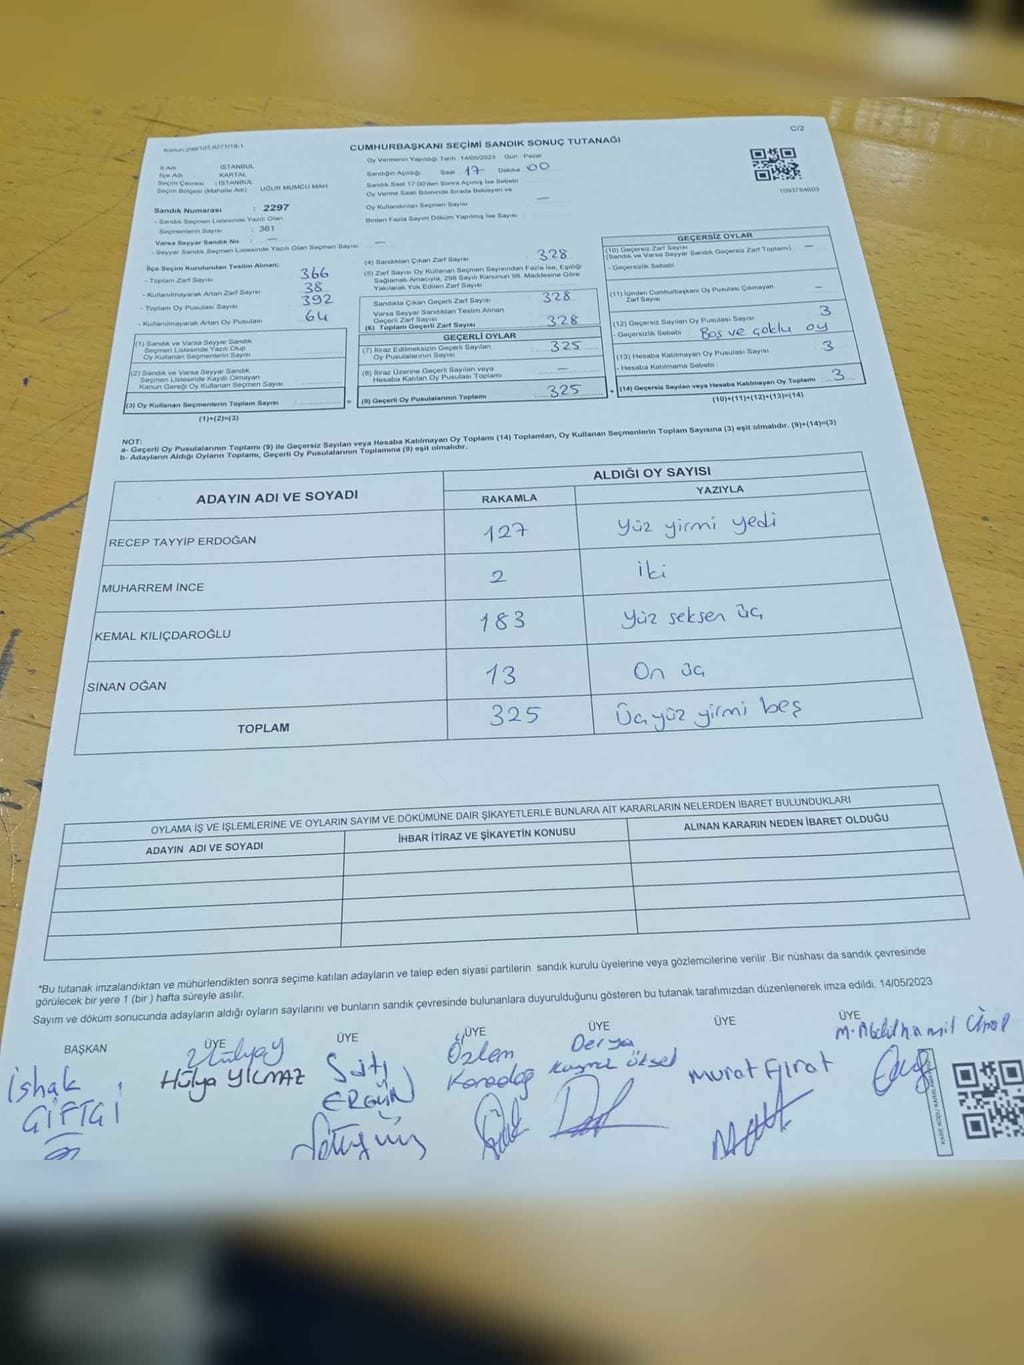 C/2
CUMHURBAŞKANI SEÇİMİ SANDIK SONUÇ TUTANAĞI
Oy Vermenin Yapıldığı Tarih 14/05/2023 Gün : Pazar
İl Adı : İSTANBUL
İlçe Adı : KARTAL
Seçim Çevresi : İSTANBUL
Seçim Bölgesi (Mahalle Adı) : UĞUR MUMCU MAH.
Sandığın Açıldığı Saat 17 Dakika 00
Sandık Saat 17:00'den Sonra Açılmış İse Sebebi
Oy Verme Saati Bitiminde Sırada Bekleyen ve
Oy Kullandırılan Seçmen Sayısı —
Birden Fazla Sayım Döküm Yapılmış İse Sayısı
1093784603
Sandık Numarası : 2297
- Sandık Seçmen Listesinde Yazılı Olan
Seçmenlerin Sayısı : 361
Varsa Seyyar Sandık No : —
- Seyyar Sandık Seçmen Listesinde Yazılı Olan Seçmen Sayısı —
İlçe Seçim Kurulundan Teslim Alınan;
- Toplam Zarf Sayısı 366
- Kullanılmayarak Artan Zarf Sayısı 38
- Toplam Oy Pusulası Sayısı 392
- Kullanılmayarak Artan Oy Pusulası 64
(1) Sandık ve Varsa Seyyar Sandık
Seçmen Listesinde Yazılı Olup
Oy Kullanan Seçmenlerin Sayısı
(2) Sandık ve Varsa Seyyar Sandık
Seçmen Listesinde Kayıtlı Olmayan
Kanun Gereği Oy Kullanan Seçmen Sayısı
(3) Oy Kullanan Seçmenlerin Toplam Sayısı
(1)+(2)=(3)
(4) Sandıktan Çıkan Zarf Sayısı 328
(5) Zarf Sayısı Oy Kullanan Seçmen Sayısından Fazla İse, Eşitliği
Sağlamak Amacıyla, 298 Sayılı Kanunun 98. Maddesine Göre
Yakılarak Yok Edilen Zarf Sayısı
Sandıkta Çıkan Geçerli Zarf Sayısı 328
Varsa Seyyar Sandıktan Teslim Alınan
Geçerli Zarf Sayısı
(6) Toplam Geçerli Zarf Sayısı 328
GEÇERLİ OYLAR
(7) İtiraz Edilmeksizin Geçerli Sayılan
Oy Pusulasının Sayısı 325
(8) İtiraz Üzerine Geçerli Sayılan veya
Hesaba Katılan Oy Pusulası Toplamı —
(9) Geçerli Oy Pusulalarının Toplamı 325
GEÇERSİZ OYLAR
(10) Geçersiz Zarf Sayısı —
(Sandık ve Varsa Seyyar Sandık Geçersiz Zarf Toplamı)
- Geçersizlik Sebebi
(11) İçinden Cumhurbaşkanı Oy Pusulası Çıkmayan
Zarf Sayısı —
(12) Geçersiz Sayılan Oy Pusulası Sayısı 3
- Geçersizlik Sebebi Boş ve çoklu oy
(13) Hesaba Katılmayan Oy Pusulası Sayısı 3
- Hesaba Katılmama Sebebi
(14) Geçersiz Sayılan veya Hesaba Katılmayan Oy Toplamı 3
(10)+(11)+(12)+(13)=(14)
NOT:
a- Geçerli Oy Pusulalarının Toplamı (9) ile Geçersiz Sayılan veya Hesaba Katılmayan Oy Toplamı (14) Toplamları, Oy Kullanan Seçmenlerin Toplam Sayısına (3) eşit olmalıdır. (9)+(14)=(3)
b- Adayların Aldığı Oyların Toplamı, Geçerli Oy Pusulalarının Toplamına (9) eşit olmalıdır.
ADAYIN ADI VE SOYADI
ALDIĞI OY SAYISI
RAKAMLA YAZIYLA
RECEP TAYYİP ERDOĞAN 127 Yüz yirmi yedi
MUHARREM İNCE 2 iki
KEMAL KILIÇDAROĞLU 183 Yüz seksen üç
SİNAN OĞAN 13 On üç
TOPLAM 325 Üçyüz yirmi beş
OYLAMA İŞ VE İŞLEMLERİNE VE OYLARIN SAYIM VE DÖKÜMÜNE DAİR ŞİKAYETLERLE BUNLARA AİT KARARLARIN NELERDEN İBARET BULUNDUKLARI
ADAYIN ADI VE SOYADI İHBAR İTİRAZ VE ŞİKAYETİN KONUSU ALINAN KARARIN NEDEN İBARET OLDUĞU
"Bu tutanak imzalandıktan ve mühürlendikten sonra seçime katılan adayların ve talep eden siyasi partilerin sandık kurulu üyelerine veya gözlemcilerine verilir .Bir nüshası da sandık çevresinde
görülecek bir yere 1 (bir ) hafta süreyle asılır.
Sayım ve döküm sonucunda adayların aldığı oyların sayılarını ve bunların sandık çevresinde bulunanlara duyurulduğunu gösteren bu tutanak tarafımızdan düzenlenerek imza edildi. 14/05/2023
BAŞKAN ÜYE ÜYE ÜYE ÜYE ÜYE ÜYE
ishak
ÇİFTÇİ
Hülya YILMAZ
Satı
ERGÜN
Özlem
Karadağ
Derya
Murat Fırat